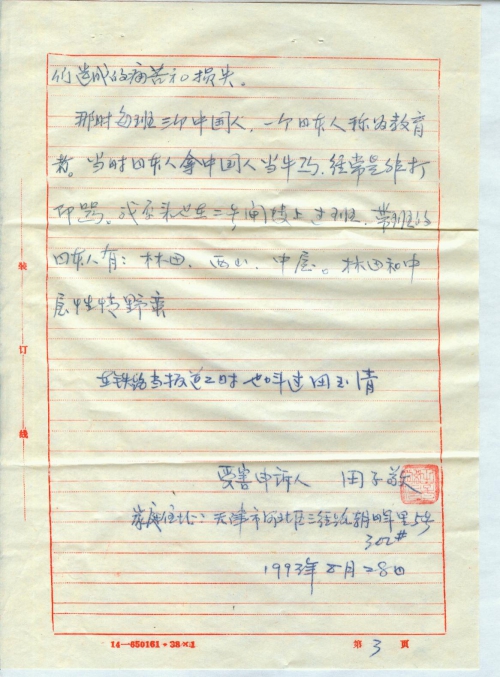 们造成的痛苦和损失。
那时每班三个中国人，一个日本人称为教育
者。当时日本人拿中国人当牛马，经常是非打
即骂。我后来也在二号闸楼上过班，带班的
日本人有：林田、西山、中尾。林田和中
尾性情野蛮
在铁路当板道工时也叫过田玉清
受害申诉人 田子敬
家庭住址：天津市河北区三经路朝晖里5号
302#
1993年5月28日
装
订
线
14—650161·38×1
第3页